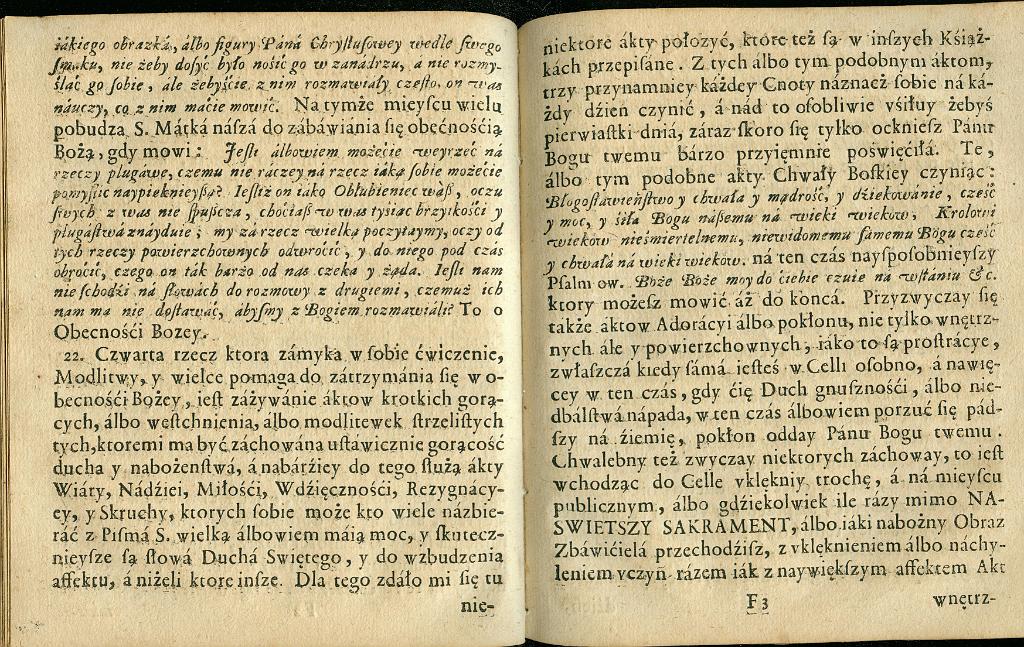 iákiego obrazká, álbo figury Páná Chryſtuſowey wedle ſwego
ſmáku, nie żeby doſyć było noſić go w zanádrzu, a nie rozmy-
ślać go ſobie, ale żebyście z nim rozmawiały często, on was
náuczy, co z nim maćie mowić. Na tymże mieyſcu wielu
pobudza S. Mátká náſzá do zábáwiánia ſię obecnośćią
Bożą, gdy mowi: Jeſli álbowiem możećie weyrzeć ná
rzeczy plugáwe, czemu nie ráczey ná rzecz iáką ſobie możećie
pomyſlić naypięknieyſzą? Ieſliż on iáko Oblubieniec wáſz, oczu
ſwych z was nie ſpuſzcza, choćiaſz w was tyśiąc brzytkośći y
plugáſtwá znáyduie; my zá rzecz wielką poczytaymy, oczy od
tych rzeczy powierzchownych odwroćić, y do niego pod czás
obroćić, czego on ták bárzo od nas czeka y żąda. Ieſli nam
nie ſchodźi ná ſłowách do rozmowy z drugiemi, czemuż ich
nam ma nie doſtawáć, ábyſmy z Bogiem rozmawiáli? To o
Obecnośći Bozey.
22. Czwarta rzecz ktora zámyka w ſobie ćwiczenie,
Modlitwy, y wielce pomaga do zátrzymánia ſię w o-
becnośći Bożey, ieſt záżywánie áktow krotkich gorą-
cych, álbo weſtchnienia, álbo modlitewek ſtrzeliſtych
tych, ktoremi ma być záchowána uſtáwicznie gorącość
ducha y nabożenſtwá, á nabárźiey do tego ſłużą ákty
Wiáry, Nádźiei, Miłośći, Wdźięcznośći, Rezygnácy-
ey, y Skruchy, ktorych ſobie może kto wiele názbie-
ráć z Piſmá S. wielką albowiem máią moc, y ſkutecz-
nieyſze są ſłowá Duchá Swiętego, y do wzbudzenia
affektu, á niżeli ktore inſze. Dla tego zdáło mi ſię tu
nie-
niektore ákty położyć, ktore też ſą w inſzych Kśiąż-
kách przepiſáne. Z tych álbo tym podobnym áktom,
trzy przynamniey káżdey Cnoty náznacż ſobie ná ká-
żdy dźien czynić, á nád to oſobliwie vśiłuy żebyś
pierwiaſtki dniá, záraz ſkoro ſię tylko ockniesz Pánu
Bogu twemu bárzo przyięmnie poświęćiłá. Te,
álbo tym podobne akty Chwały Boſkiey czyniąc:
Błogoſłáwieńſtwo y chwałá y mądrość, y dźiekowánie, cześć
y moc, y śiłá Bogu náſzemu ná wieki wiekow, Krolowi
wiekow nieśmiertelnemu, niewidomemu ſámemu Bogu cześć
y chwałá ná wieki wiekow. ná ten czás nayſpoſobnieyſzy
Pſalm ow. Boże Boże moy do ćiebie czuie ná wſtániu &c.
ktory możeſz mowić áż do końcá. Przyzwyczay ſię
także áktow Adorácyi álbo pokłonu, nie tylko wnętrz-
nych ále y powierzchownych, iáko to ſą proſtrácye,
zwłaſzczá kiedy ſámá ieſteś w Celli oſobno, á nawię-
cey w ten czás, gdy ćię Duch gnuſznośći, álbo nie-
dbálſtwá nápada, w ten czás álbowiem porzuć ſię pád-
ſzy ná źiemię, pokłon odday Pánu Bogu twemu.
Chwalebny też zwyczay niektorych záchoway, to ieſt
wchodząc do Celle vklękniy trochę, á ná mieyſcu
publicznym, álbo gdźiekolwiek ile rázy mimo NA-
SWIETSZY SAKRAMENT, álbo iáki nabożny Obraz
Zbáwićielá przechodźiſz, z vklęknieniem álbo náchy-
leniem vczyń rázem iák z naywiękſzym affektem Akt
F 3
wnętrz-